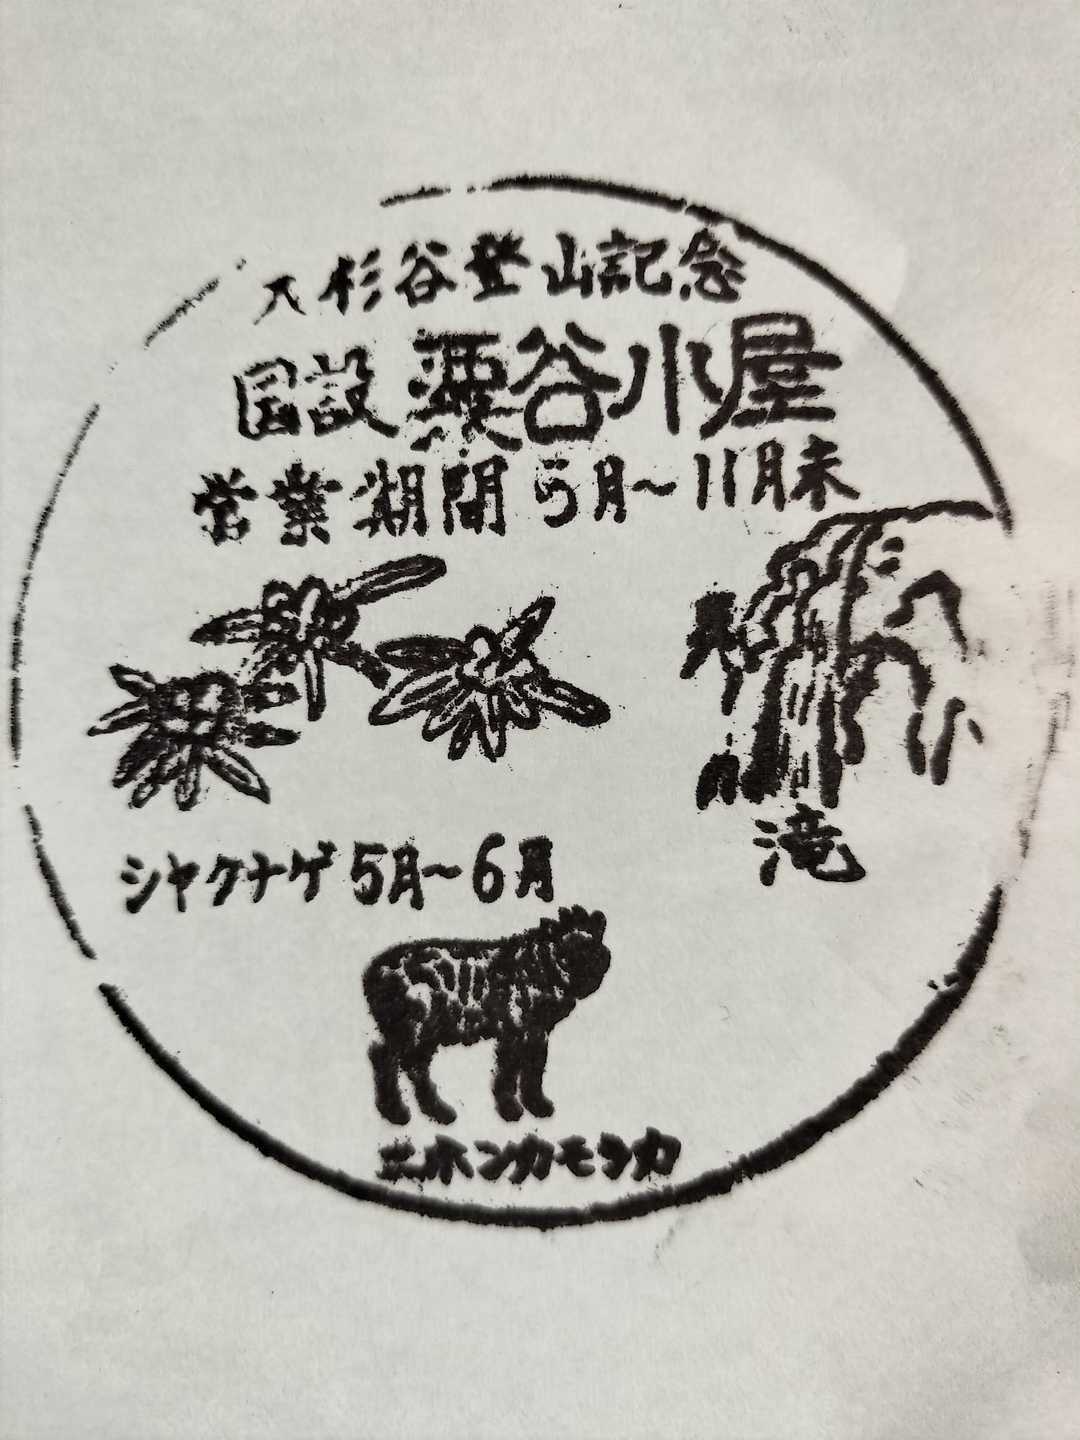 大杉谷登山記念
国設 粟谷小屋
営業期間 5月～11月末
滝
シャクナゲ 5月～6月
ニホンカモシカ